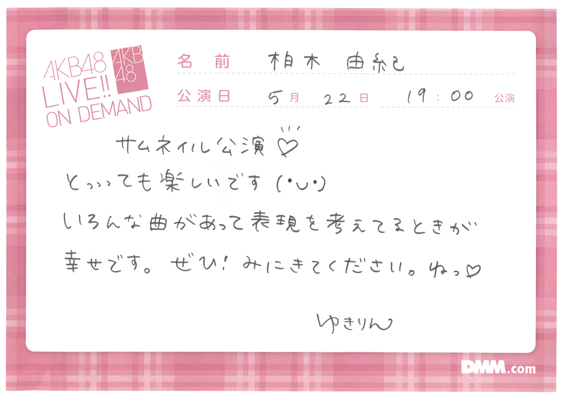 AKB48
LIVE!!
ON DEMAND
AKB
48
名前 柏木 由紀
公演日 5月 22日 19:00 公演
サムネイル公演♡
とっっっても楽しいです(・ᴗ・)
いろんな曲があって表現を考えてるときが
幸せです。ぜひ!みにきてください。ねっ♡
ゆきりん
DMM.com